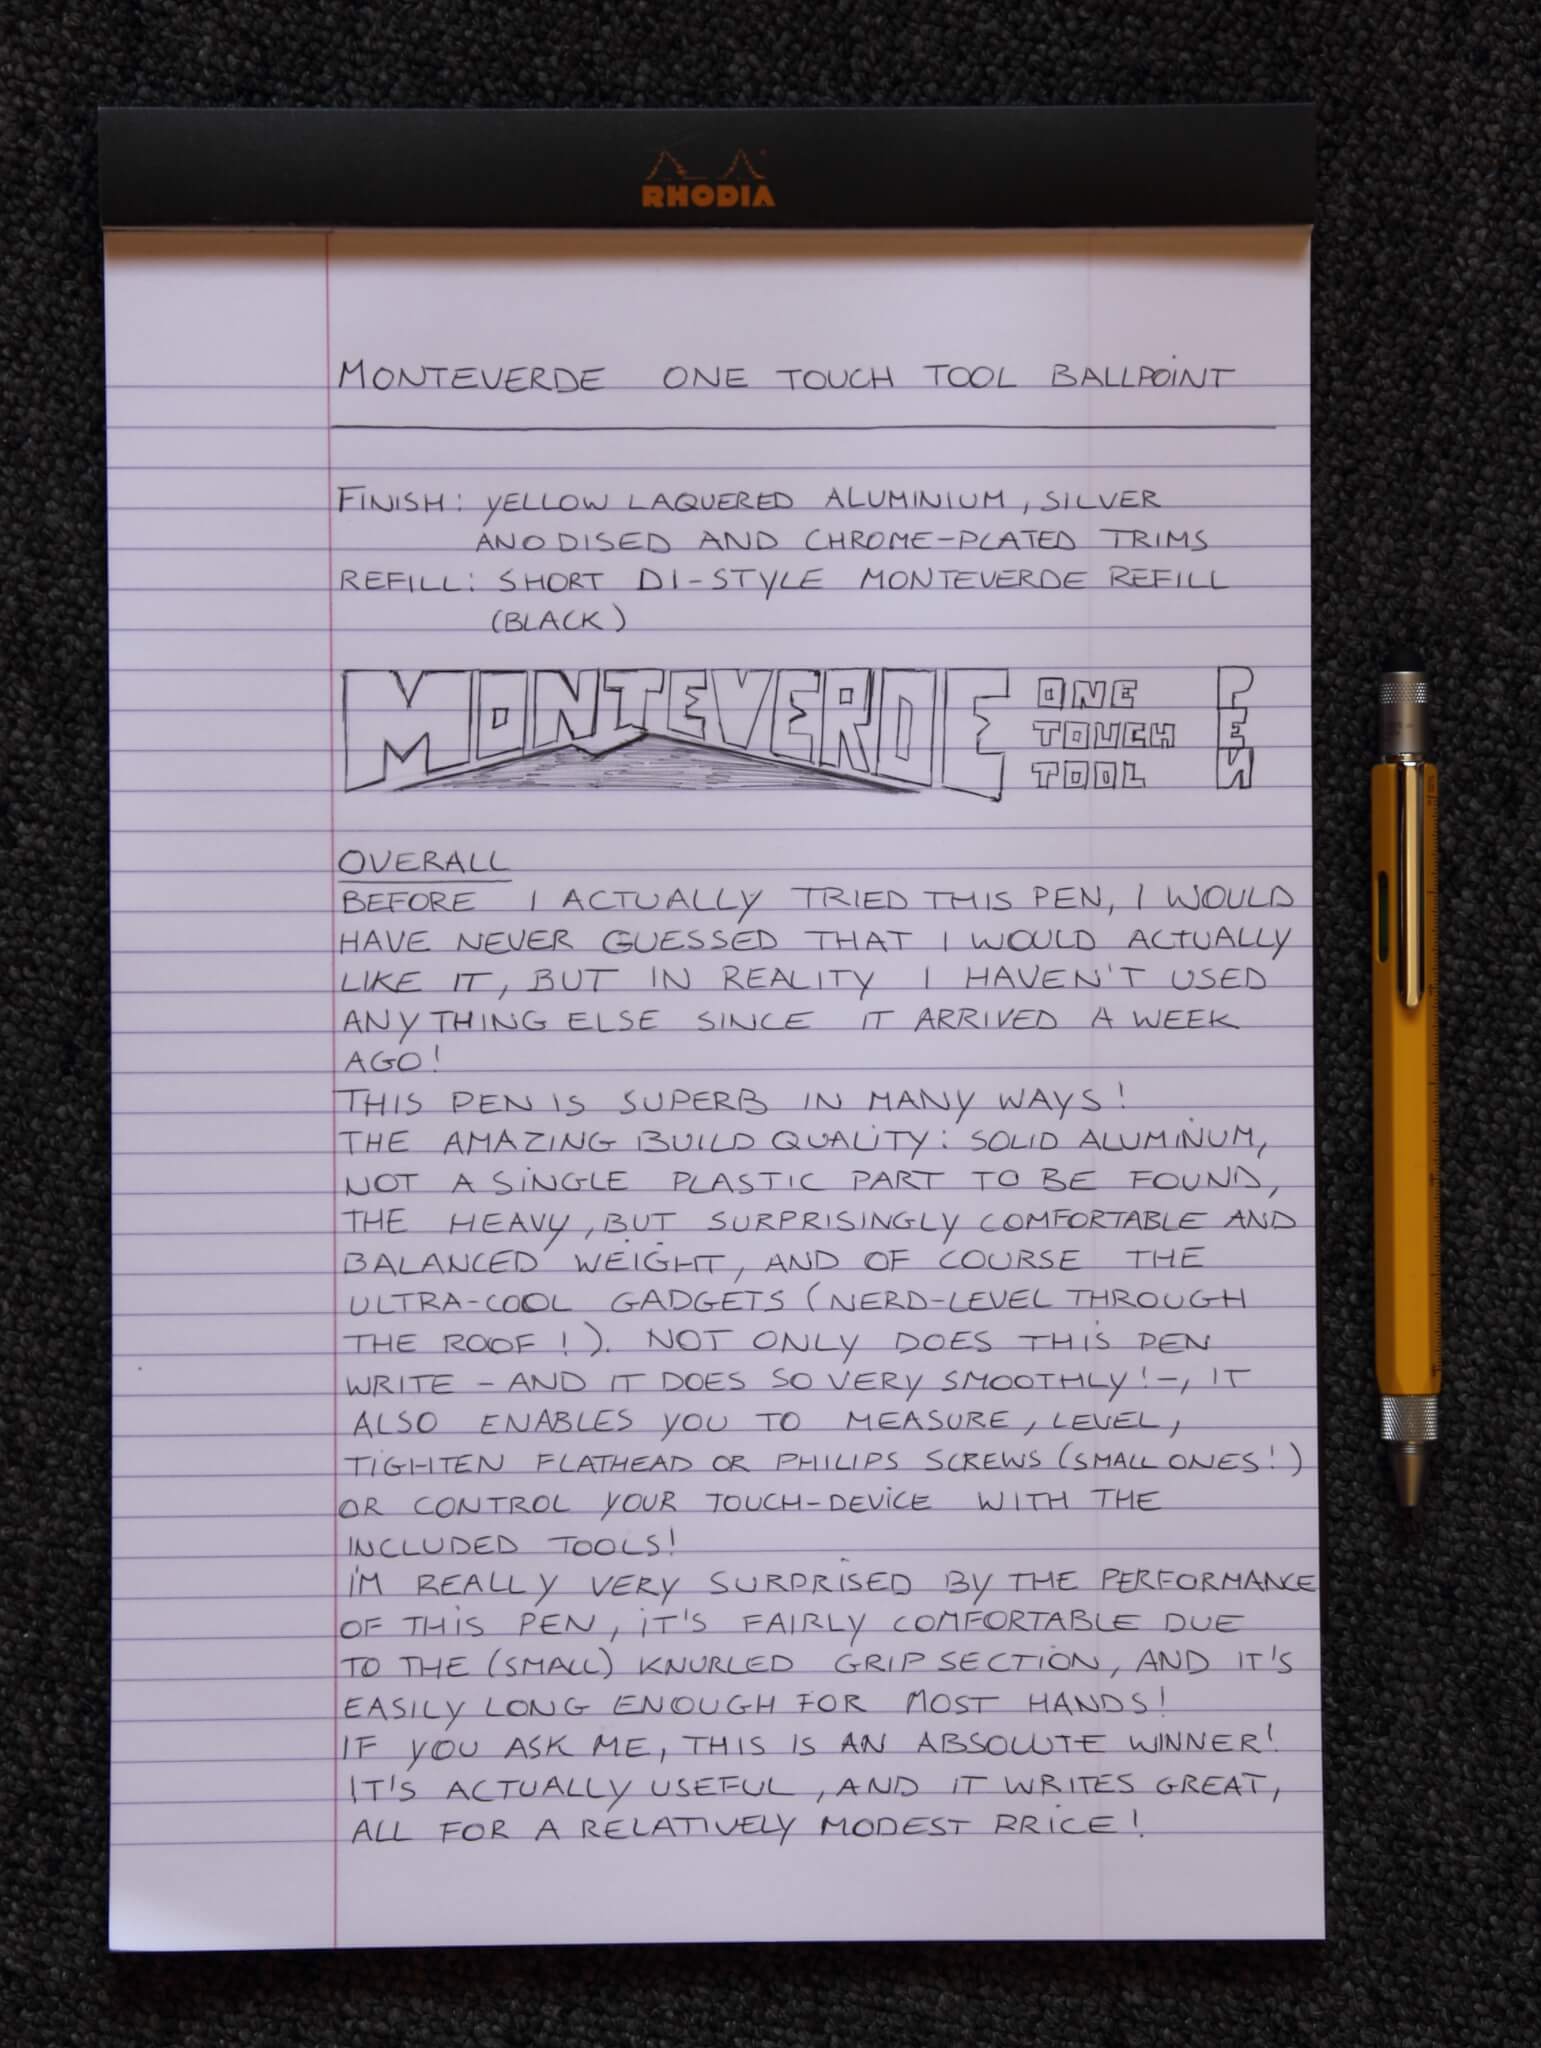 RHODIA
MONTEVERDE ONE TOUCH TOOL BALLPOINT
FINISH: YELLOW LAQUERED ALUMINIUM, SILVER
ANODISED AND CHROME-PLATED TRIMS
REFILL: SHORT D1-STYLE MONTEVERDE REFILL
(BLACK)
MONTEVERDE ONE TOUCH TOOL PEN
OVERALL
BEFORE I ACTUALLY TRIED THIS PEN, I WOULD
HAVE NEVER GUESSED THAT I WOULD ACTUALLY
LIKE IT, BUT IN REALITY I HAVEN'T USED
ANYTHING ELSE SINCE IT ARRIVED A WEEK
AGO!
THIS PEN IS SUPERB IN MANY WAYS!
THE AMAZING BUILD QUALITY: SOLID ALUMINUM,
NOT A SINGLE PLASTIC PART TO BE FOUND,
THE HEAVY, BUT SURPRISINGLY COMFORTABLE AND
BALANCED WEIGHT, AND OF COURSE THE
ULTRA-COOL GADGETS (NERD-LEVEL THROUGH
THE ROOF!). NOT ONLY DOES THIS PEN
WRITE - AND IT DOES SO VERY SMOOTHLY! -, IT
ALSO ENABLES YOU TO MEASURE, LEVEL,
TIGHTEN FLATHEAD OR PHILIPS SCREWS (SMALL ONES!)
OR CONTROL YOUR TOUCH-DEVICE WITH THE
INCLUDED TOOLS!
I'M REALLY VERY SURPRISED BY THE PERFORMANCE
OF THIS PEN, IT'S FAIRLY COMFORTABLE DUE
TO THE (SMALL) KNURLED GRIP SECTION, AND IT'S
EASILY LONG ENOUGH FOR MOST HANDS!
IF YOU ASK ME, THIS IS AN ABSOLUTE WINNER!
IT'S ACTUALLY USEFUL, AND IT WRITES GREAT,
ALL FOR A RELATIVELY MODEST PRICE!